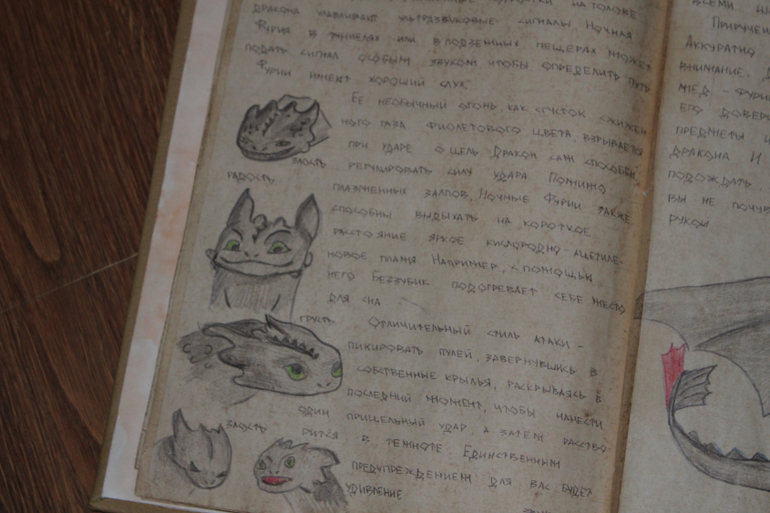 НА ГОЛОВЕ
ДРАКОНА УЛАВЛИВАЮТ УЛЬТРАЗВУКОВЫЕ СИГНАЛЫ. НОЧНАЯ
ФУРИЯ В ТУННЕЛЯХ ИЛИ В ПОДЗЕМНЫХ ПЕЩЕРАХ МОЖЕТ
ПОДАТЬ СИГНАЛ ОСОБЫМ ЗВУКОМ, ЧТОБЫ ОПРЕДЕЛИТЬ ПУТЬ
ФУРИИ ИМЕЕТ ХОРОШИЙ СЛУХ.
ЕЕ НЕОБЫЧНЫЙ ОГОНЬ, КАК СГУСТОК СЖИЖЕН
НОГО ГАЗА ФИОЛЕТОВОГО ЦВЕТА, ВЗРЫВАЕТСЯ
ПРИ УДАРЕ О ЦЕЛЬ ДРАКОН САМ СПОСОБЕН
ЗЛОСТЬ РЕГУЛИРОВАТЬ СИЛУ УДАРА ПОМИМО
РАДОСТЬ ПЛАЗМЕННЫХ ЗАЛПОВ, НОЧНЫЕ ФУРИИ ТАКЖЕ
СПОСОБНЫ ВЫДЫХАТЬ НА КОРОТКОЕ
РАССТОЯНИЕ ЯРКОЕ КИСЛОРОДНО-АЦЕТИЛЕ-
НОВОЕ ПЛАМЯ НАПРИМЕР, С ПОМОЩЬЮ
НЕГО БЕЗЗУБИК ПОДОГРЕВАЕТ СЕБЕ МЕСТО
ДЛЯ СНА
ГРУСТЬ ОТЛИЧИТЕЛЬНЫЙ СТИЛЬ АТАКИ -
ПИКИРОВАТЬ ПУЛЕЙ, ЗАВЕРНУВШИСЬ В
СОБСТВЕННЫЕ КРЫЛЬЯ, РАСКРЫВАЯСЬ В
ПОСЛЕДНИЙ МОМЕНТ, ЧТОБЫ НАНЕСТИ
ОДИН ПРИЦЕЛЬНЫЙ УДАР, А ЗАТЕМ РАСТВО-
ЗЛОСТЬ РИТСЯ В ТЕМНОТЕ ЕДИНСТВЕННЫМ
ПРЕДУПРЕЖДЕНИЕМ ДЛЯ ВАС БУДЕТ
УДИВЛЕНИЕ
ВСЕМИ
ПРИРУЧЕН
АККУРАТНО
ВНИМАНИЕ.
ФУРИ
ЕГО ДОВЕР
ПРЕДМЕТЫ И
ДРАКОНА И
ПОДОЖДАТЬ
ВЫ НЕ ПОЧУВ
РУКОЙ